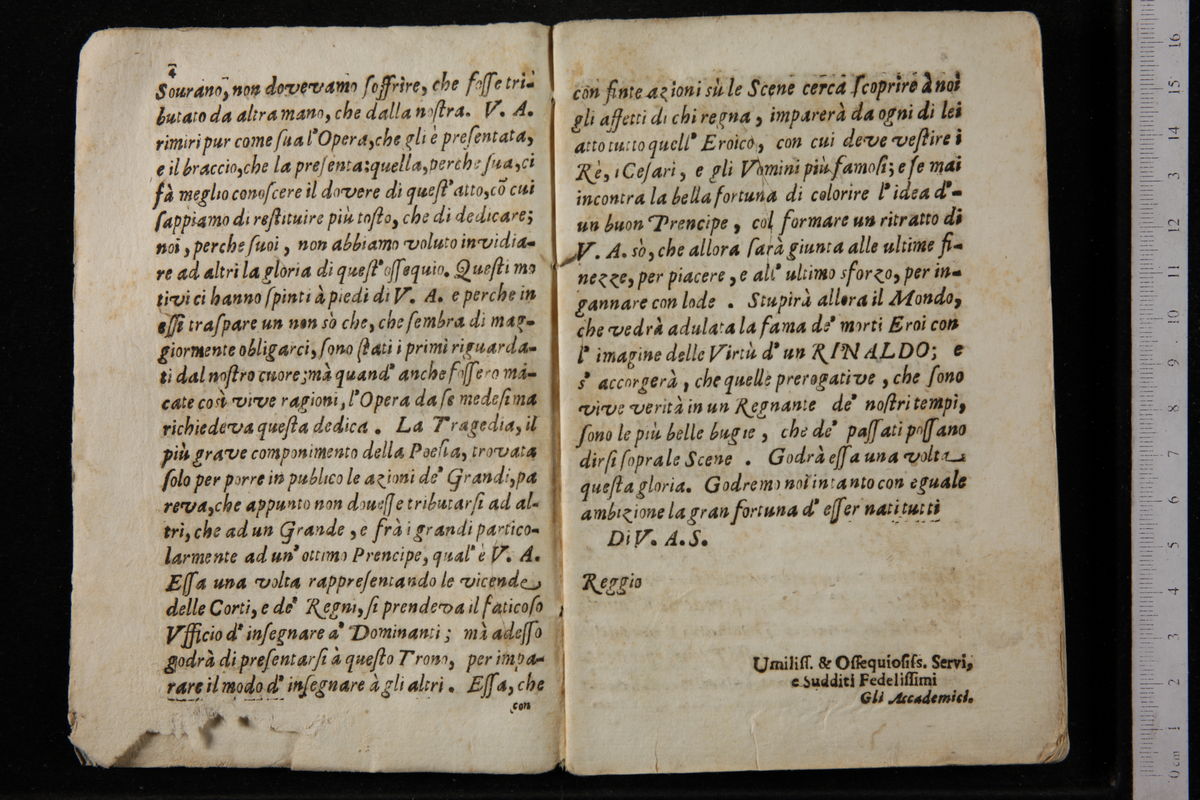 4
Sourano, non dovevamo soffrire, che fosse tri-
butato da altra mano, che dalla nostra. V. A.
rimiri pur come sua l'Opera, che gli è presentata,
e il braccio, che la presenta: quella, perche sua, ci
fà meglio conoscere il dovere di quest'atto, cõ cui
sappiamo di restituire più tosto, che di dedicare;
noi, perche suoi, non abbiamo voluto invidia-
re ad altri la gloria di quest'ossequio. Questi mo
tivi ci hanno spinti à piedi di V. A. e perche in
essi traspare un non sò che, che sembra di mag-
giormente obligarci, sono stati i primi riguarda-
ti dal nostro cuore; mà quand' anche fossero mã-
cate così vive ragioni, l'Opera da se medesima
richiedeva questa dedica. La Tragedia, il
più grave componimento della Poesia, trovata
solo per porre in publico le azioni de' Grandi, pa
reva, che appunto non douesse tributarsi ad al-
tri, che ad un Grande, e frà i grandi partico-
larmente ad un' ottimo Prencipe, qual' è V. A.
Essa una volta rappresentando le vicende
delle Corti, e de' Regni, si prendeva il faticoso
Vfficio d' insegnare a' Dominanti; mà adesso
godrà di presentarsi à questo Trono, per impa-
rare il modo d' insegnare à gli altri. Essa, che
con
con finte azioni sù le Scene cerca scoprire à noi
gli affetti di chi regna, imparerà da ogni di lei
atto tutto quell' Eroico, con cui deve vestire i
Rè, i Cesari, e gli Vomini più famosi; e se mai
incontra la bella fortuna di colorire l' idea d'-
un buon Prencipe, col formare un ritratto di
V. A. sò, che allora sarà giunta alle ultime fi-
nezze, per piacere, e all' ultimo sforzo, per in-
gannare con lode. Stupirà allora il Mondo,
che vedrà adulata la fama de' morti Eroi con
l' imagine delle Virtù d' un RINALDO; e
s' accorgerà, che quelle prerogative, che sono
vive verità in un Regnante de' nostri tempi,
sono le più belle bugie, che de' passati possano
dirsi sopra le Scene. Godrà essa una volta
questa gloria. Godremo noi intanto con eguale
ambizione la gran fortuna d' esser nati tutti
Di V. A. S.
Reggio
Umiliss. & Ossequiosiss. Servi,
e Sudditi Fedelissimi
Gli Accademici.